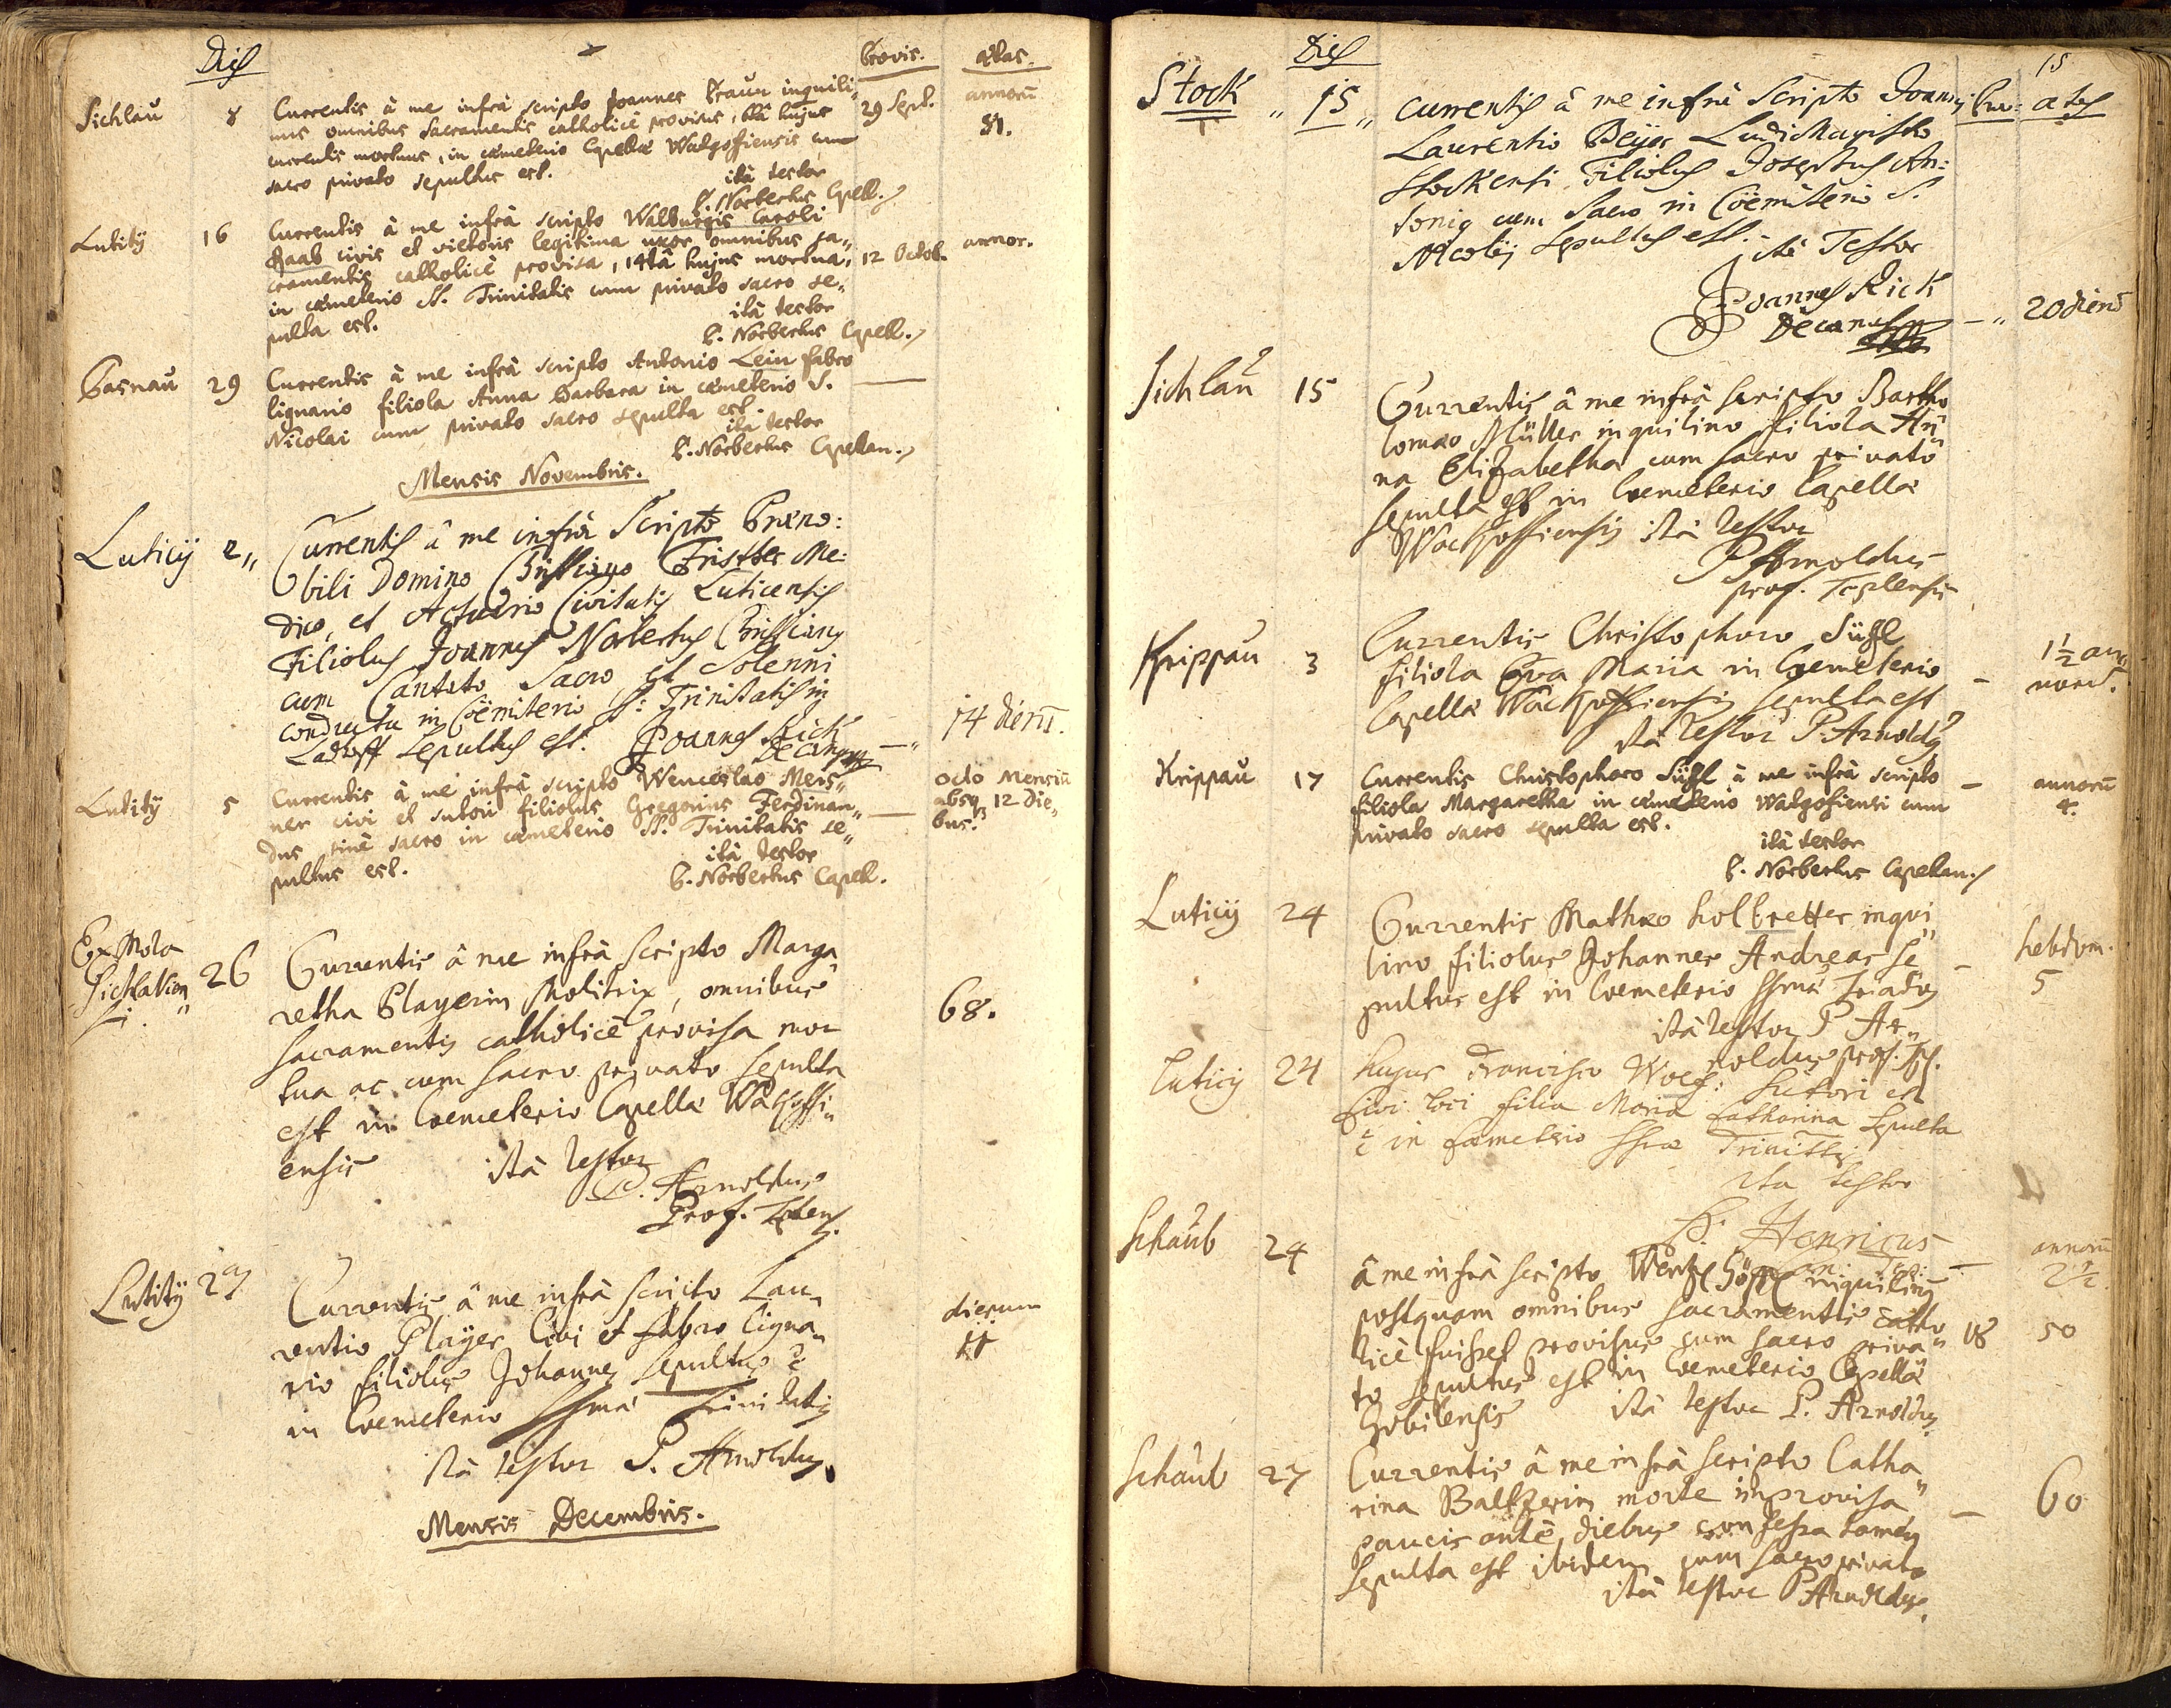 Dies
Provis.
ætas.
Sichlaŭ 8 Currentis â me infrà scripto Joannes Braun inquili-
nus omnibus sacramentis catholicè provisus, hujus 29 Sept. annorũ
currentis mortuus, in cœmeterio Capellæ Walgoffiensis cum 81.
sacro privato sepultus est.
ità testor
P. Norbertus Capell.
Lutitÿ 16 Currentis â me infrà scripto Walburgis Caroli
Haab civis et vietoris legitima uxor omnibus sa„
cramentis catholicè provisa, 14tâ hujus mortua, 12 Octob. annor.
in cœmeterio SS. Trinitatis cum privato sacro se„
pulta est.
ità testor
P. Norbertus Capell.
Gasnaŭ 29 Currentis â me infrà scripto Antonio Lein fabro
lignario filiola Anna Barbara in cœmeterio S. —
Nicolai cum privato sacro sepulta est.
ità testor
P. Norbertus Capellan.
Mensis Novembris.
Luticÿ 2„ Currentis â me infrà Scripto Præno:
bili Domino Christiano Me:
dico, et Actuario Civitatis Luticensis
Filiolus Joannes Norbertus Christiang
cum Cantato Sacro et Solenni
conductu in Cöemiterio S: Trinitatis in
Ladroff sepultus est. Joannes Rick
Decanus —„ 14 dierũ.
Lutitÿ 5 Currentis â me infrà scripto Wenceslao Meis„
ner civi et sutori filiolus Gregorius Ferdinan„ — octo Mensiũ
dus sine sacro in cœmeterio SS. Trinitatis se„ absq3 12 die„
pultus est. bus.
ità testor
P. Norbertus Capell.
Ex Mola
Sichlavien„
si. 26 Currentis â me infrà scripto Marga„
retha Playerin Molitrix, omnibus
sacramentis catholicè provisa mor
tua ac cum sacro privato sepulta 68.
est in Coemeterio Capellæ Walchoffi„
ensis ità testor
P. Arnoldus
Prof. Teplens.
Lutitÿ 29 Currentis â me infrà scripto Lau„
rentio Player Civi et fabro ligna„ dierum
rio filiolus Johannes sepultus ẽ 11
in Coemeterio SSmæ Trinitatis
ità testor P. Arnoldus
Mensis Decembris.
15
Dies
Stock „ 15„ currentis â me infrà Scripto Joanni Pro: ætas
Laurentio Beyer Ludimagistro
Stockensi Filiolus Josephus An:
tonig cum Sacro in Cöemiterio S.
Nicolÿ sepultus est.
ità Testor
Joannes Rick
Decanus —„ 20 dierũ
Sichlaŭ 15 Currentis â me infrà scripto Bartho
lomæo Müller inquilino filiola An„
na Elisabetha cum sacro privato
sepulta est in Coemeterio Capellæ
Walchoffiensis ità testor
P. Arnoldus
prof. Teplensis
Krippaŭ 3 Currentis Christophoro Süssl
filiola Eva Maria in Coemeterio — 1½ an„
Capellæ Walchoffiensis sepulta est norũ.
ità testor P. Arnoldg
Krippaŭ 17 Currentis Christophoro Süssl â me infrà scripto — annorũ
filiola Margaretha in cœmeterio Walgofiensi cum 4.
privato sacro sepulta est.
ità testor
P. Norbertus Capellan.
Luticÿ 24 Currentis Mathæo Holbretter inqui„
lino filiolus Johannes Andreas se — hebdom.
pultus est in Coemeterio SSmæ Triados 5
ità testor P Ar„
noldus prof. Tepl.
Luticÿ 24 hujus Francisco Wolf: sutori et
civi loci filia Maria Catharina sepulta
ẽ in cæmeterio SSmæ Trinittis
ita testor
P. Henricus
— annorũ
2½
Schaŭb 24 â me infrà scripto inquilinus
postquam omnibus sacramentis catho
licè fuisset provisus cum sacro priva„ 18 50
to sepultus est in Coemeterio Capellæ
Gobilensis ità testor P. Arnoldus
Schaŭb 27 Currentis â me infrà scripto Catha„
rina Baltzerin morte improvisa — 60
paucis antè diebus confessa tamen
sepulta est ibidem cum sacro privato
ità testor P Arnoldus